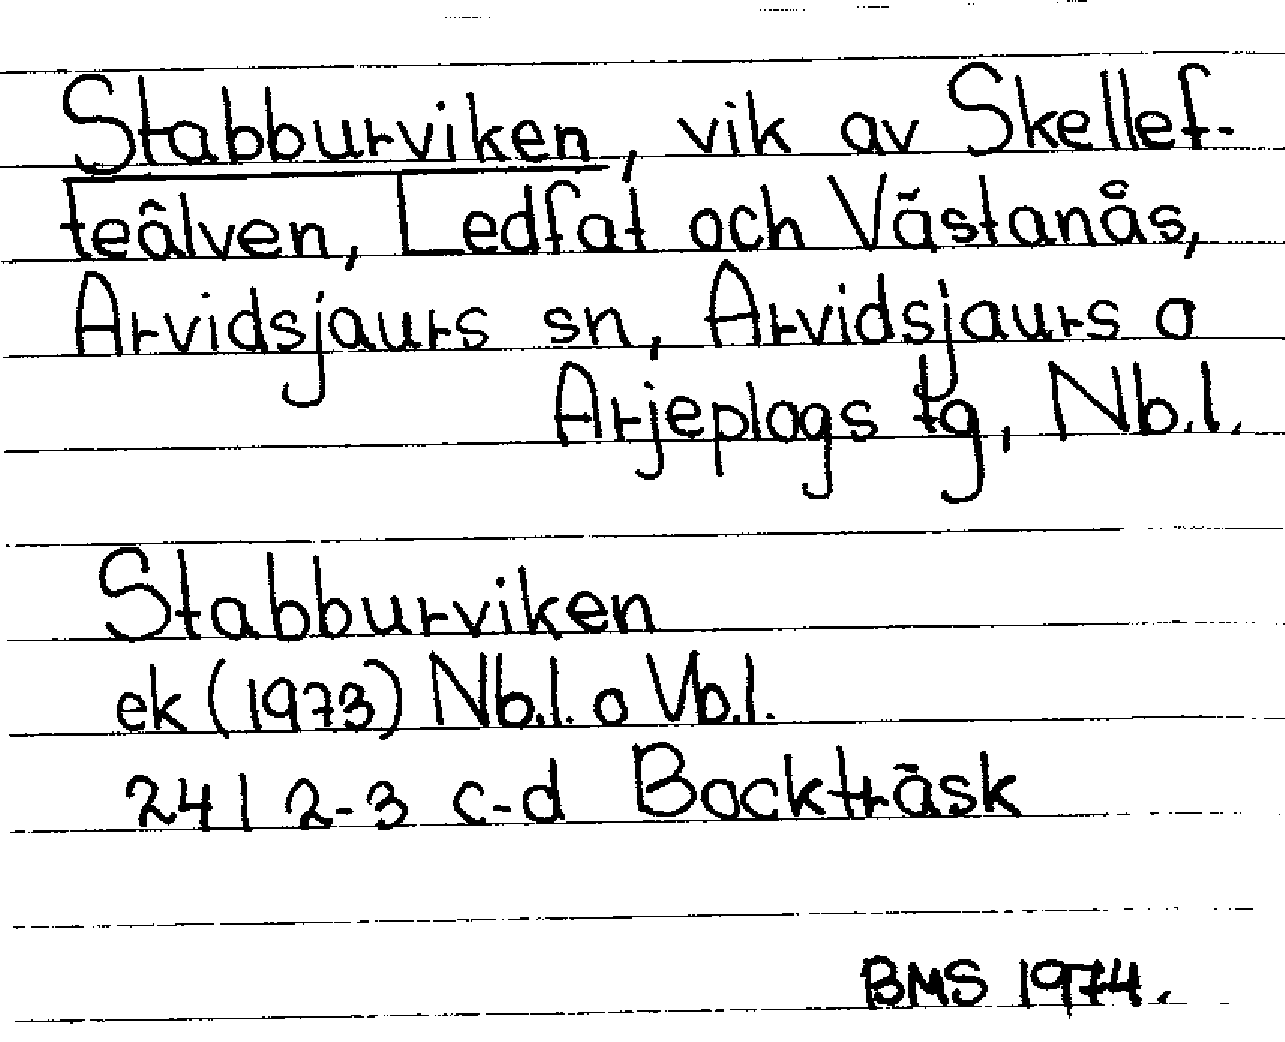 Stabburviken, vik av Skellef-
teälven, Ledfat och Västanås,
Arvidsjaurs sn, Arvidsjaurs o
Arjeplogs tg, Nb.l.
Stabburviken
ek (1973) Nb.l. o Vb.l.
24 I 2-3 c-d Bockträsk
BMS 1974.